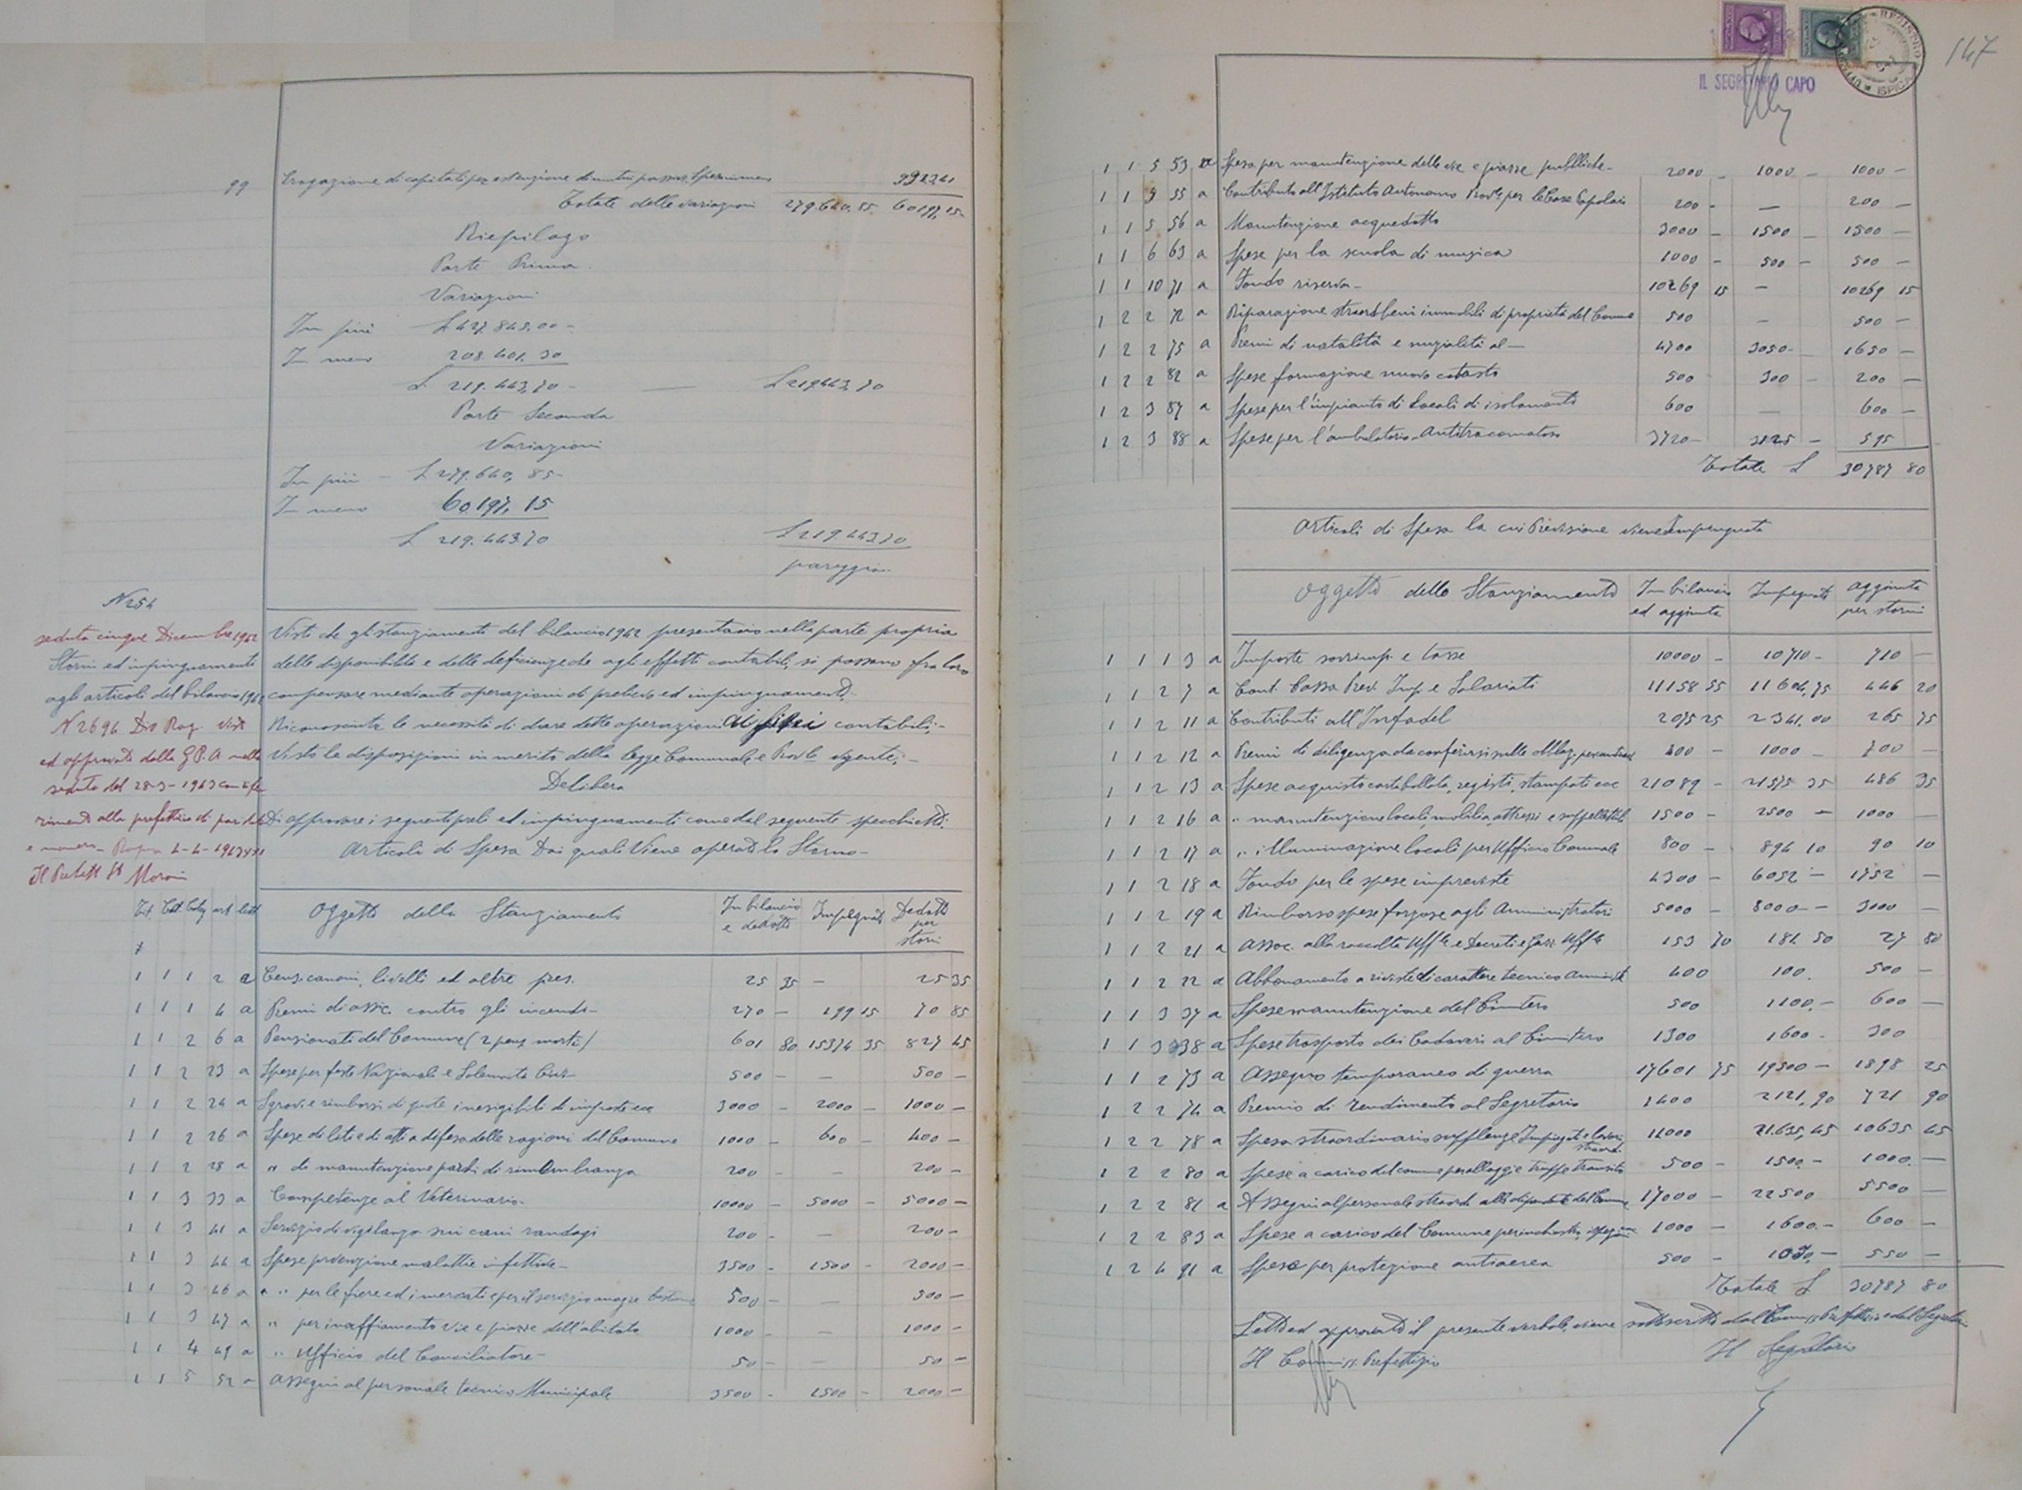 99 Erogazione di capitali per estinzione di mutui passivi
Totale delle variazioni 279.640.85 60197,15
Riepilogo
Parte Prima
Variazioni
In più L 427.845.00-
In meno 208.401,30
L. 219.443,70 - L 219443,70
Parte Seconda
Variazioni
In più - L 279.640,85-
In meno 60.197,15
L 219.443.70 L 219.443,70
pareggio
N 254
seduta cinque Dicembre 1942
Storni ed impinguamenti
agli articoli del bilancio 1942
N 2694 Div Rag. Visto
ed approvato dalla G.P.A nella
seduta del 28-3-1943
alla prefettizia di pari data
e numero - Ragusa 4-4-1943 XXI
Il Prefetto
Visto che gli stanziamenti del bilancio 1942 presentano nella parte propria
delle disponibilità e delle deficienze che agli effetti contabili, si possono fra loro
compensare mediante operazioni di prelievo ed impinguamenti.
Riconosciuta la necessità di dette operazioni ai fini contabili;-
Visto le disposizioni in merito della legge Comunale e Prov.le vigente;-
Delibera
Di approvare i seguenti ed impinguamenti come dal seguente specchietto:
Articoli di Spesa Dai quali Viene operato lo Storno-
Tit. Cat. art. lett.
Oggetto dello Stanziamento In bilancio e dedotto Impegnato Dedotto per storni
1 1 1 2 a Cens. canoni, livelli ed altre pres. 25 35 - 25 35
1 1 1 4 a Premi di assic. contro gli incendi- 270 - 199 15 70 85
1 1 2 6 a Pensionati del Comune (2 morti) 601 80 15374 35 827 45
1 1 2 23 a Spese per feste Nazionali e Solennità Civ- 500 - - 500 -
1 1 2 24 a Sgravi e rimborsi di quote inesigibili di imposte ecc 3000 - 2000 - 1000 -
1 1 2 26 a Spese di lite e di atti a difesa delle ragioni del Comune 1000 - 600 - 400 -
1 1 2 28 a " di manutenzione parchi di rimembranza 200 - - 200 -
1 1 3 33 a Competenze al Veterinario. 10000 - 5000 - 5000 -
1 1 3 41 a Servizio di vigilanza sui cani randagi 200 - - 200 -
1 1 3 44 a Spese prevenzione malattie infettive- 3500 - 1500 - 2000 -
1 1 3 46 a " per le fiere ed i mercati e per il servizio 500 - - 500 -
1 1 3 47 a " per inaffiamento vie e piazze dell'abitato 1000 - - 1000 -
1 1 4 49 a " Ufficio del Conciliatore- 50 - - 50 -
1 1 5 52 a Assegni al personale tecnico Municipale 3500 - 1500 - 2000 -
147
IL SEGRETARIO CAPO
REGISTRO ISPICA
1 1 5 53 a Spesa per manutenzione delle vie e piazze pubbliche- 2000 - 1000 - 1000 -
1 1 5 55 a Contributo all'Istituto Autonomo Prov.le per le Case Popolari 200 - - 200 -
1 1 5 56 a Manutenzione acquedotto 3000 - 1500 - 1500 -
1 1 6 63 a Spese per la scuola di musica 1000 - 500 - 500 -
1 1 10 71 a Fondo riserva- 10269 15 - 10269 15
1 2 2 72 a Riparazione straord beni immobili di proprietà del Comune 500 - 500 -
1 2 2 75 a Premi di natalità e nuzialità al- 4700 3050- 1650 -
1 2 2 82 a Spese formazione nuovo catasto 500 300 - 200 -
1 2 3 87 a Spese per l'impianto di Locali di isolamento 600 - 600 -
1 2 3 88 a Spese per l'ambulatorio Antitracomatoso 3720- 3125 - 595
Totale L 30787 80
Articoli di Spesa la cui Previsione viene Impinguata
Oggetto dello Stanziamento In bilancio ed aggiunte Impegnato Aggiunte per storni
1 1 1 3 a Imposte sovrimp. e tasse 10000 - 10710 - 710 -
1 1 2 7 a Cont. Cassa Prev. Imp. e Salariati 11158 55 11604,75 446 20
1 1 2 11 a Contributi all'Infadel 2075 25 2341.00 265 75
1 1 2 12 a Premi di diligenza da conferirsi sulle 300 - 1000 - 700 -
1 1 2 13 a Spese acquisto carta bollata, registri, stampati ecc 21089 - 21575 35 486 35
1 1 2 16 a " manutenzione locali, mobilia, attrezzi e suppellettili 1500 - 2500 - 1000 -
1 1 2 17 a " illuminazione locali per Ufficio Comunale 800 - 894 10 90 10
1 1 2 18 a Fondo per le spese impreviste 4300 - 6052 - 1752 -
1 1 2 19 a Rimborso spese forzose agli Amministratori 5000 - 8000 - 3000 -
1 1 2 21 a Assoc. alla raccolta Uff.le e Decreti e Gazz. Uff.le 153 70 181 50 27 80
1 1 2 22 a Abbonamento a riviste di carattere tecnico Amminist 400 100. 500 -
1 1 3 37 a Spese manutenzione del Cimitero 500 1100.- 600 -
1 1 3 38 a Spese trasporto dei Cadaveri al Cimitero 1300 1600 - 300
1 1 2 73 a Assegno temporaneo di guerra 17601 75 19500 - 1898 25
1 2 2 74 a Premio di rendimento al Segretario 1400 2121,90 721 90
1 2 2 78 a Spesa straordinaria supplenze Impiegati e lavori straord. 11000 21.635,45 10635 45
1 2 2 80 a Spese a carico del comune per alloggi e truppe transito 500 - 1500 - 1000.-
1 2 2 81 a Assegni al personale straord. alle dipendenze del Comune 17000 - 22500 5500 -
1 2 2 83 a Spese a carico del Comune per 1000 - 1600.- 600 -
1 2 4 91 a Spese per protezione antiaerea 500 - 1050,- 550 -
Totale L 30787 80
Letto ed approvato il presente verbale, viene sottoscritto dal Commiss. Prefettizio e dal Segretario
Il Commiss. Prefettizio Il Segretario